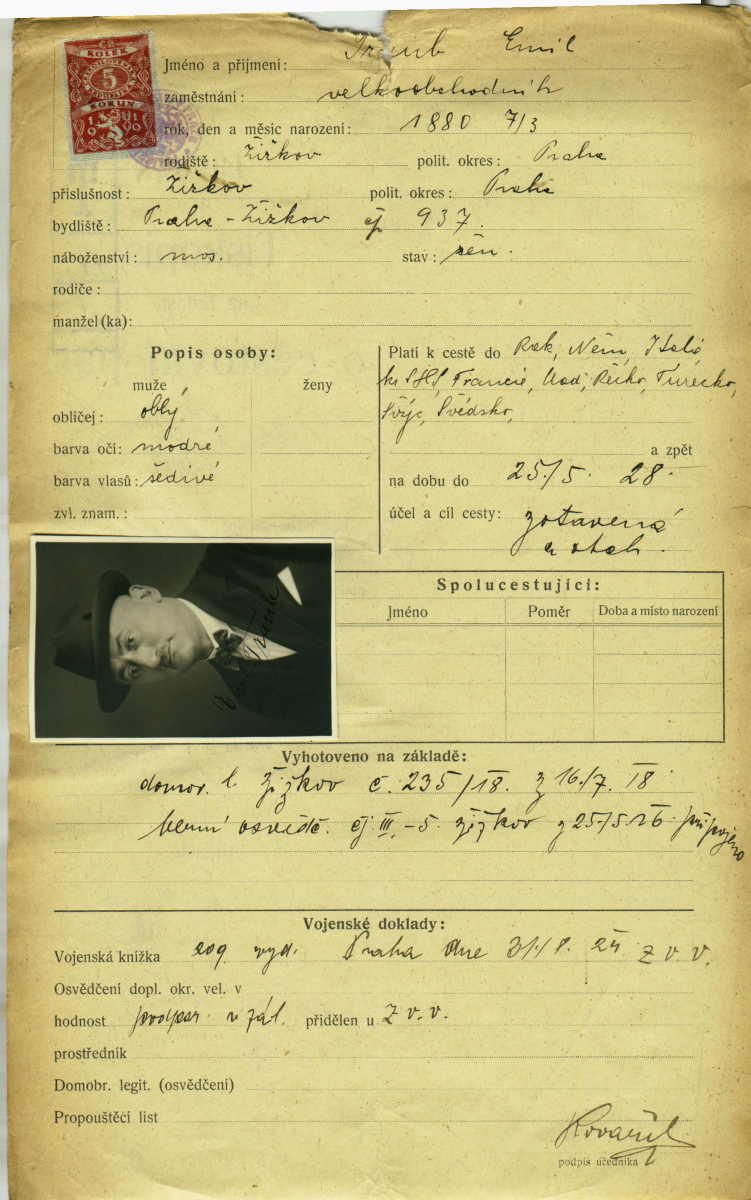 KOLEK
5
KORUN
Jméno a příjmení: Traub Emil
zaměstnání: velkoobchodník
rok, den a měsíc narození: 1880 7/3
rodiště: Žižkov polit. okres: Praha
příslušnost: Žižkov polit. okres: Praha
bydliště: Praha - Žižkov čp 937.
náboženství: mos. stav: žen.
rodiče:
manžel (ka):
Popis osoby:
muže ženy
obličej: oblý
barva očí: modré
barva vlasů: šedivé
zvl. znam.:
Platí k cestě do Rak, Něm, Italie
kr SHS, Francie, Maď, Řecko, Turecko,
Švýc, Švédsko,
a zpět
na dobu do 25/5. 28.
účel a cíl cesty: zotavená
a obch.
Spolucestující:
Jméno Poměr Doba a místo narození
Vyhotoveno na základě:
domov. l. Žižkov č. 235/18. z 16./7. 18.
berní osvědč. čj III, -5. Žižkov z 25/5. 26. připojeno
Vojenské doklady:
Vojenská knížka vyd. Praha dne Z v. v.
Osvědčení dopl. okr. vel. v
hodnost v zál. přidělen u Z v. v.
prostředník
Domobr. legit. (osvědčení)
Propouštěcí list
Kovařík
podpis úředníka